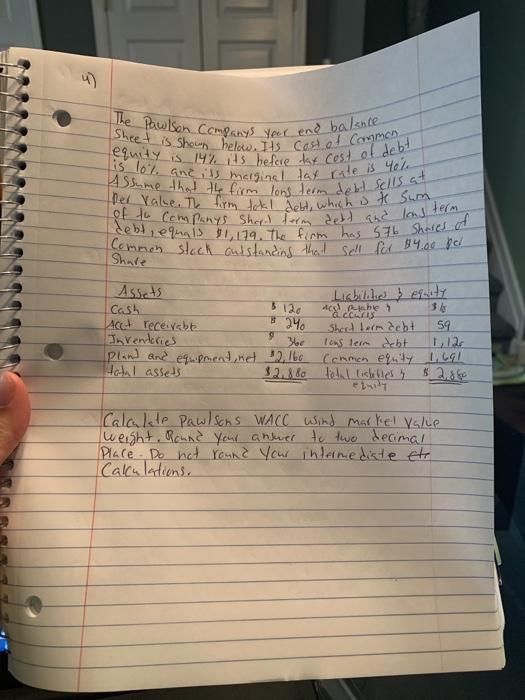 4)
The Pawlson Companys year end balance
sheet is shown below. Its cost of common
equity is 14%, its before tax cost of debt
is 10%, and its marginal tax rate is 40%.
Assume that the firm long term debt sells at
per value. The firm total debt, which is the sum
of the companys short term debt and long term
debt, equals $1,179. The firm has 576 shares of
common stock outstanding that sell for $4.00 per
share
Assets Liabilities & equity
Cash $ 120 acct payable & accurls $10
Acct receivabl $ 240 short term debt 59
Inventories $ 360 long term debt 1,120
Plant and equipment, net $2,160 common equity 1,691
total assets $2,880 total liabilities & equity $ 2,880
Calculate pawlsons WACC using market value
weight. Round your answer to two decimal
Place. Do not round your intermediate
Calculations.